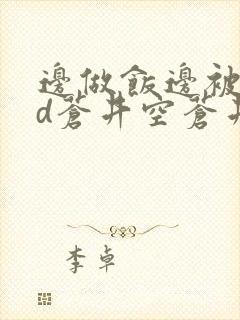 邊做飯邊被
d蒼井空蒼井
李卓